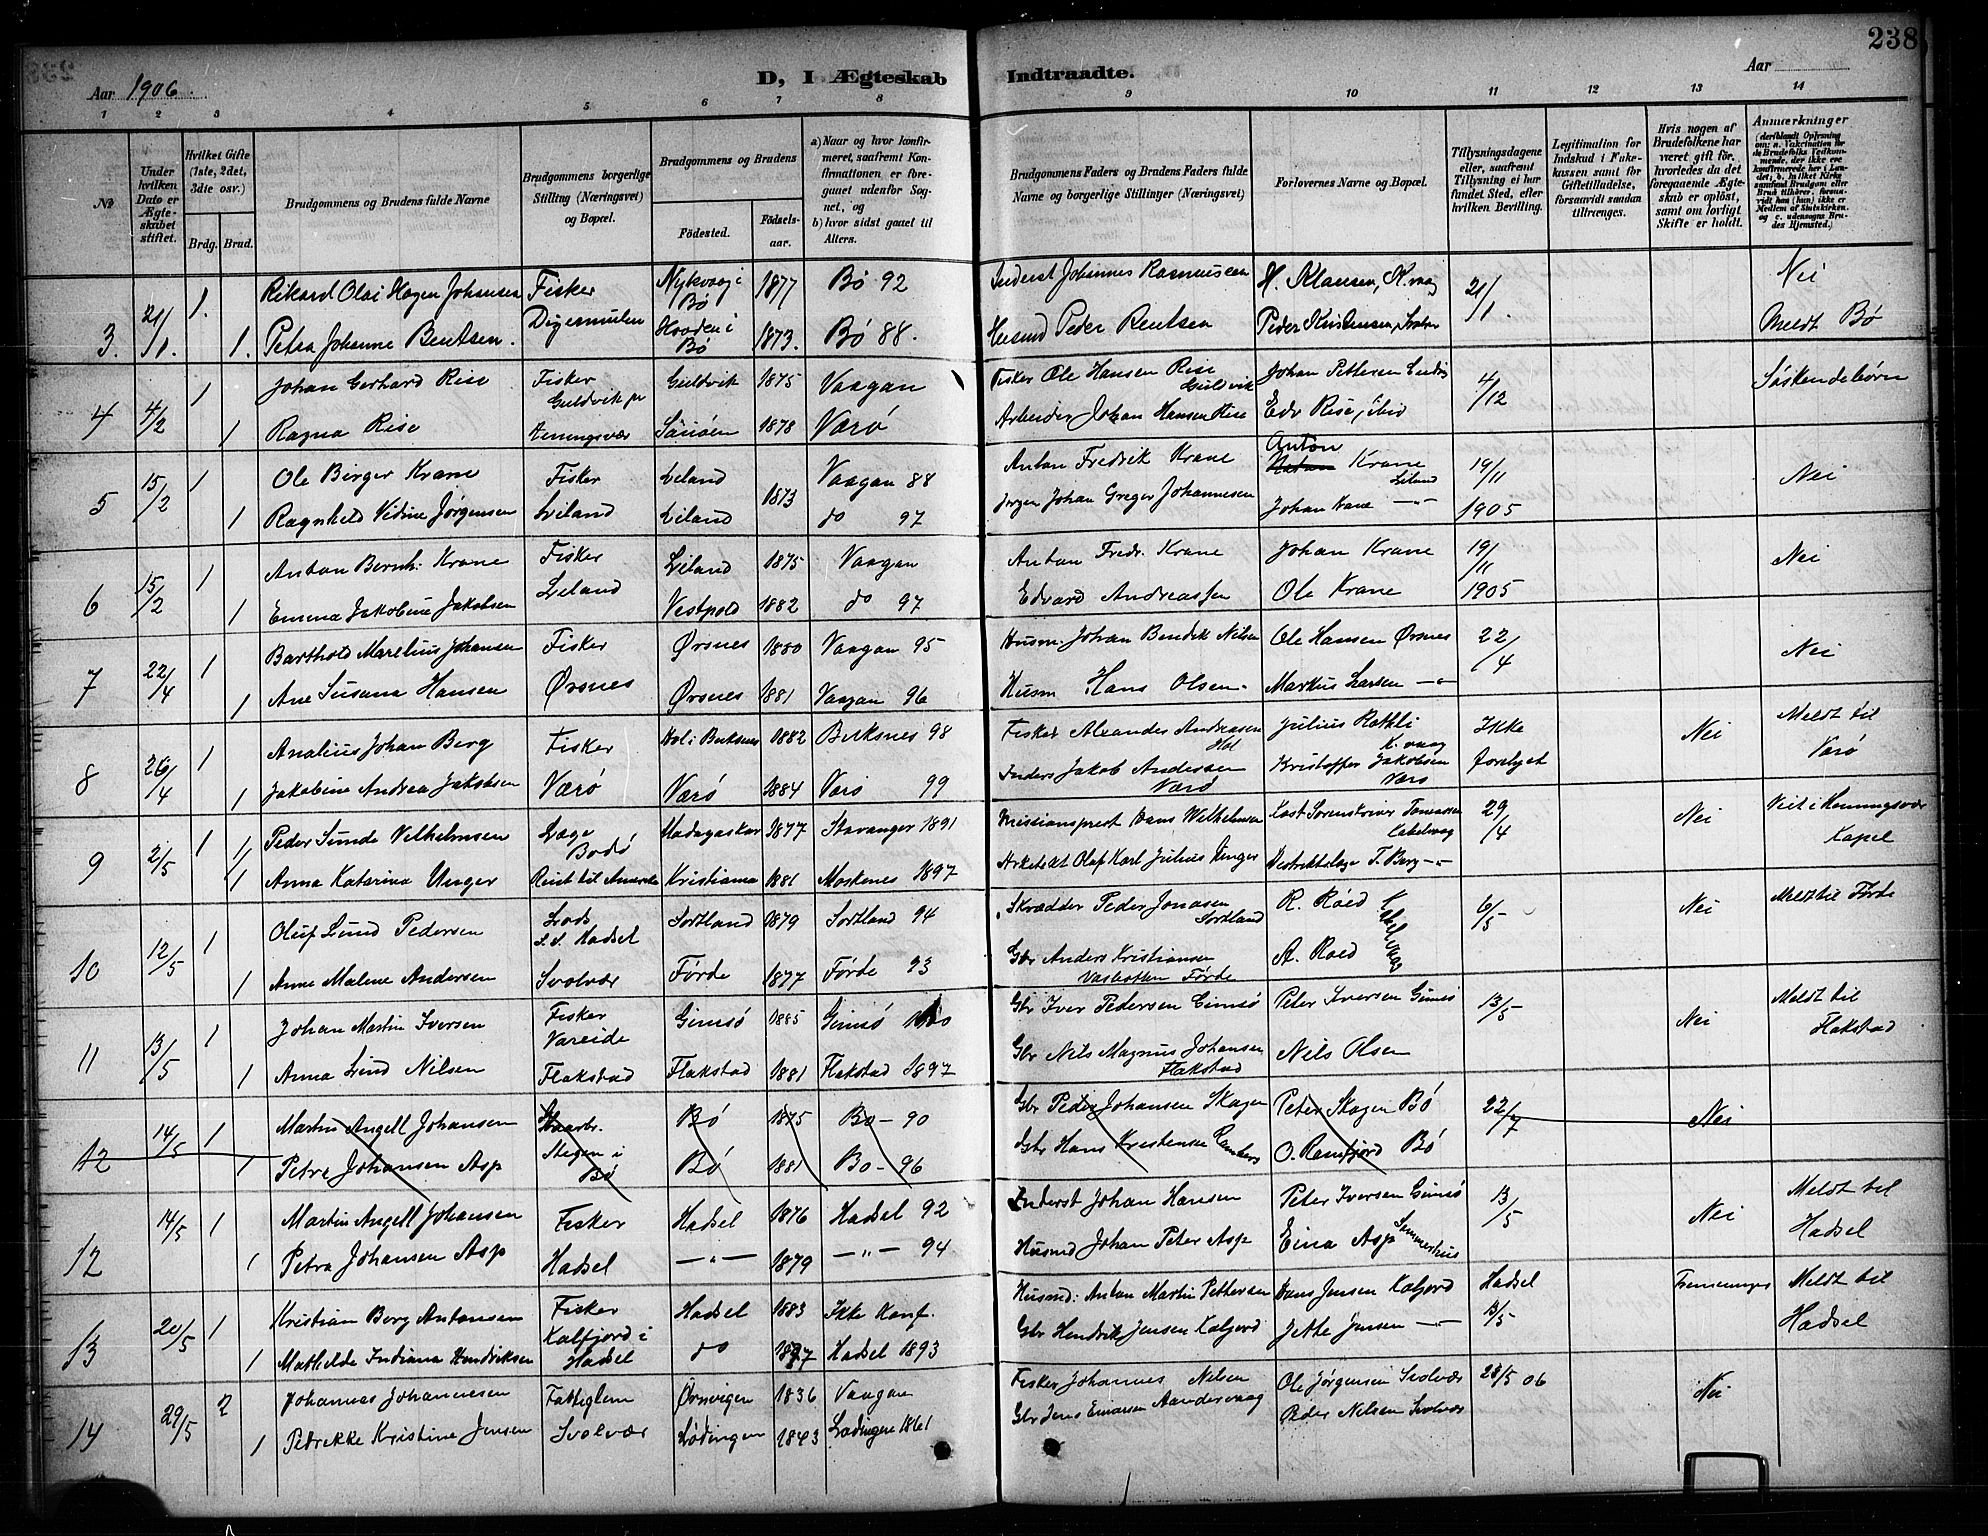 238
Aar 1906.
D, I Ægteskab Indtraadte.
Aar
1 2 3 4 5 6 7 8 9 10 11 12 13 14
No
Under hvilken Dato er Ægteskabet stiftet.
Hvilket Gifte (1ste, 2det, 3die osv.)
Brdg. Brud.
Brudgommens og Brudens fulde Navne
Brudgommens borgerlige Stilling (Næringsvei) og Bopæl.
Brudgommens og Brudens
Fødested. Fødselsaar.
a) Naar og hvor konfirmeret, saafremt Konfirmationen er foregaaet udenfor Sognet, og
b) hvor sidst gaaet til Alters.
Brudgommens Faders og Brudens Faders fulde Navne og borgerlige Stillinger (Næringsvei)
Forlovernes Navne og Bopæl.
Tillysningsdagene eller, saafremt Tillysning ei har fundet Sted, hvilken Bevilling.
Legitimation for Indskud i Enkekassen samt for Giftetilladelse, forsaavidt saadan tiltrænges.
Hvis nogen af Brudefolkene har været gift før, hvorledes da det foregaaende Ægteskab er opløst, samt om lovligt Skifte er holdt.
Anmærkninger
3. 21/1. 1. Rikard Olai Hagen Johansen Fisker Nykvaag i Bø 1877 Bø 92 Inderst Johannes Rasmussen H. Klausen, K.vaag 21/1. Nei
1. Petra Johanne Bentsen. Digermulen Hovden i Bø 1873. Bø 88. Husmd Peder Bentsen Peder Kristensen, Meldt Bø
4 4/2 1 Johan Gerhard Rise Fisker Guldvik 1875 Vaagan Fisker Ole Hansen Rise Guldvik Johan Pettersen 4/12 Søskendebørn
1 Ragna Rise Guldvik pr Henningsvær 1878 Værø Arbeider Johan Hansen Rise Edv Rise, ibid
5 15/2 1 Ole Birger Krane Fisker Leland Vaagan 88 Anton Fredrik Krane Anton Krane Leland 19/11 Nei
1 Ragnhild Vidine Jørgensen Leland Leland 1873 do 97 Jørgen Johan Greger Johannesen Johan Krane —"— 1905
6 15/2 1 Anton Bernh. Krane Fisker Leland 1875 Vaagan Anton Fredr. Krane Johan Krane 19/11 Nei
1 Emma Jakobine Jakobsen Leland Vestpold 1882 do 97 Edvard Andreassen Ole Krane 1905
7 22/4 1 Barthold Marelius Johansen Fisker Ørsnes 1880 Vaagan 95 Husm. Johan Bendik Nilsen Ole Hansen Ørsnes 22/4 Nei
1 Ane Susana Hansen Ørsnes Ørsnes 1881 Vaagan 96 Husm Hans Olsen Markus Larsen —"—
8 26/4 1 Analius Johan Berg Fisker Hol i Buksnes 1882 Buksnes 98 Fisker Alexander Andreasen Hol Julius Rathli K.vaag Ikke Nei Meldt til
1 Jakobine Andrea Jakobsen Værø Værø 1884 Værø 99 Inders Jakob Andersen Værø Kristoffer Jakobsen Værø forelyst Værø
9 2/5 1 Peder Sunde Vilhelmsen Læge Bodø Madagaskar 1877 Stavanger 1891 Missionsprest Hans Wilhelmsen 29/4 Nei Viet i Henningsvær Kapel
1 Anna Katarina Unger Reist til Amerika Kristiania 1881 Moskenes 1897 Arkitekt Olaf Karl Julius Unger Distriktslæge T. Berg —"—
10 12/5 1 Oluf Lund Pedersen Lods Hadsel Sortland 1879 Sortland 94 Skrædder Peder Jonasen Sortland R. Røed 6/5 Nei Meldt til Førde
1 Anne Malene Andersen Svolvær Førde 1877 Førde 93 Gbr Anders Kristiansen Førde A. Roed
11 13/5 1 Johan Martin Iversen Fisker Vareide Gimsø 1885 Gimsø Gbr Iver Pedersen Gimsø Peter Iversen Gimsø 13/5 Nei Meldt til
1 Anna Lind Nilsen Flakstad Flakstad 1881 Flakstad 1897 Gbr Nils Magnus Johansen Flakstad Nils Olsen Flakstad
12 14/5 1 Martin Angell Johansen Bø 1875 Bø - 90 Gbr Peder Johansen Skagen Peter Skagen Bø 22/7 Nei
1 Petra Johansen Asp Stegen i Bø Bø 1881 Bø - 96 Gbr Hans Kristensen O. Ramfjord Bø
12 14/5 1 Martin Angell Johansen Fisker Hadsel 1876 Hadsel 92 Inderst Johan Hansen Peter Iversen Gimsø 13/5 Nei Meldt til
1 Petra Johansen Asp Hadsel —"— 1879 —"— 94 Husmd Johan Peter Asp Eina Asp Sommerhus Hadsel
13 20/5 1 Kristian Berg Antonsen Fisker Hadsel 1883 Ikke Konf. Husmd: Anton Martin Pettersen Hans Jensen Kalfjord Hadsel Meldt til
1 Mathilde Indiana Hendriksen Kalfjord i Hadsel do 1877 Hadsel 1893 Gbr Hendrik Jensen Kalfjord Jette Jensen —"— 13/5 Hadsel
14 29/5 2 Johannes Johannesen Fattiglem Ørnvigen 1836 Vaagan Fisker Johannes Nilsen Ole Jørgensen Svolvær 28/5 06 Nei
1 Pedrikke Kristine Jensen Svolvær Lødingen 1843 Lødingen 1861 Gbr Jens Aandervaag Peder Nilsen Svolvær